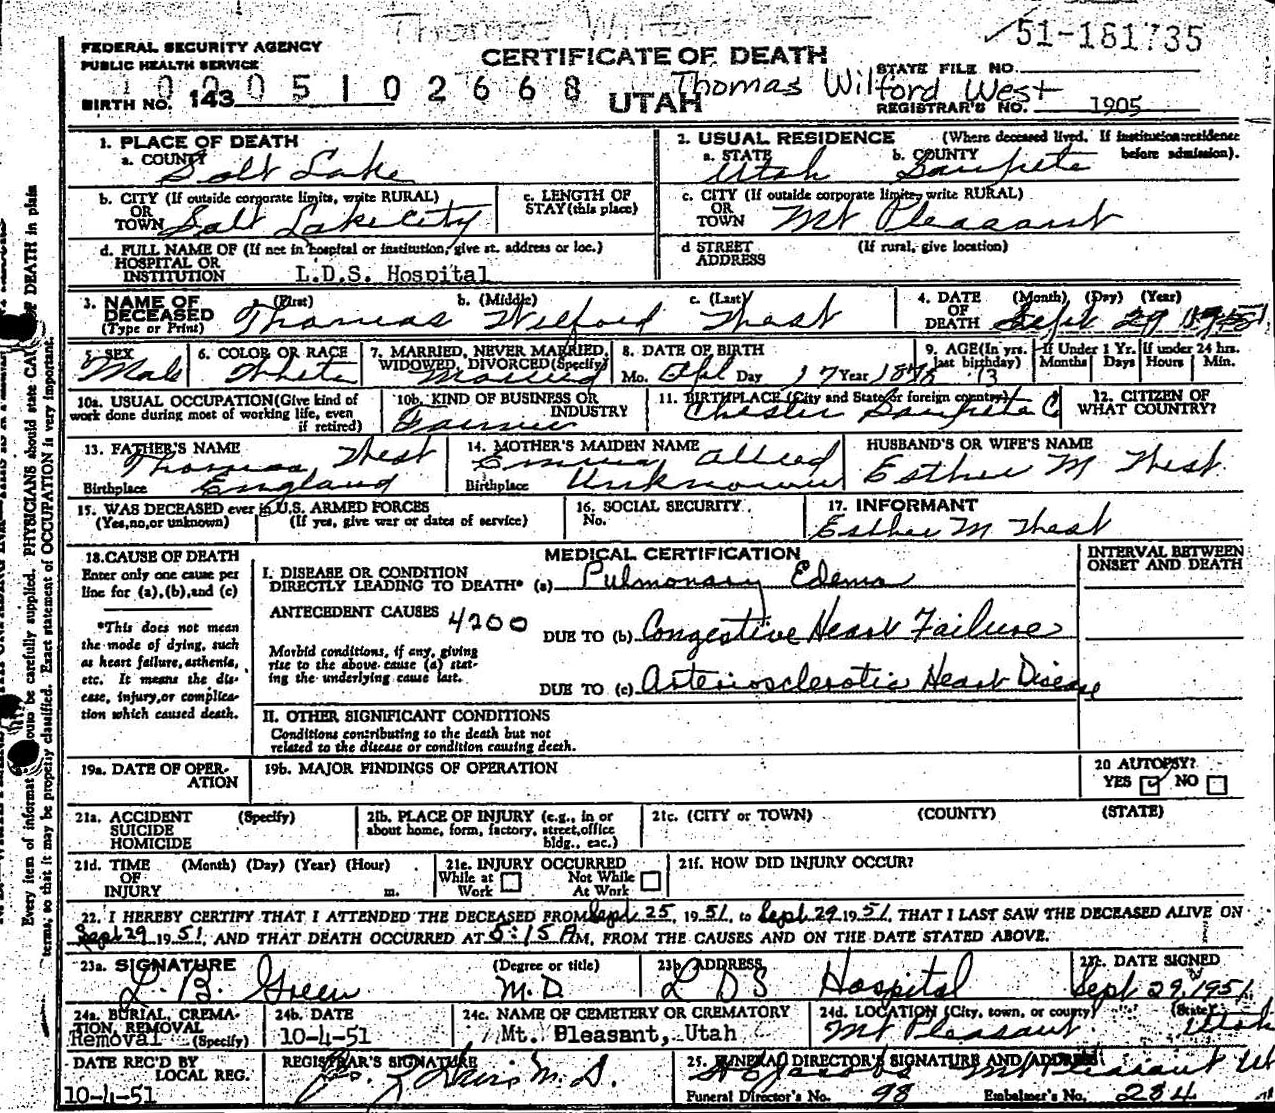 Thomas Wilford
51-181735
FEDERAL SECURITY AGENCY
PUBLIC HEALTH SERVICE
CERTIFICATE OF DEATH
UTAH
Thomas Wilford West
STATE FILE NO.
BIRTH NO. 143
REGISTRAR'S NO. 1905
1. PLACE OF DEATH
a. COUNTY Salt Lake
b. CITY (If outside corporate limits, write RURAL)
OR
TOWN Salt Lake City
c. LENGTH OF
STAY (this place)
d. FULL NAME OF (If not in hospital or institution, give st. address or loc.)
HOSPITAL OR
INSTITUTION L.D.S. Hospital
2. USUAL RESIDENCE (Where deceased lived. If institution: residence
before admission).
a. STATE Utah b. COUNTY Sanpete
c. CITY (If outside corporate limits, write RURAL)
OR
TOWN Mt Pleasant
d STREET (If rural, give location)
ADDRESS
3. NAME OF a. (First) b. (Middle) c. (Last)
DECEASED
(Type or Print) Thomas Wilford West
4. DATE (Month) (Day) (Year)
OF
DEATH Sept 29 1951
5. SEX
Male
6. COLOR OR RACE
White
7. MARRIED, NEVER MARRIED,
WIDOWED, DIVORCED (Specify)
Married
8. DATE OF BIRTH
Mo. Apl Day 17 Year 1878
9. AGE (In yrs.
last birthday)
73
If Under 1 Yr.
Months Days
If under 24 hrs.
Hours Min.
10a. USUAL OCCUPATION (Give kind of
work done during most of working life, even
if retired)
10b. KIND OF BUSINESS OR
INDUSTRY
Farmer
11. BIRTHPLACE (City and State or foreign country)
Chester Sanpete C
12. CITIZEN OF
WHAT COUNTRY?
13. FATHER'S NAME
Thomas West
Birthplace England
14. MOTHER'S MAIDEN NAME
Emma Allred
Birthplace Unknown
HUSBAND'S OR WIFE'S NAME
Esther M West
15. WAS DECEASED ever in U.S. ARMED FORCES
(Yes, no, or unknown) (If yes, give war or dates of service)
16. SOCIAL SECURITY
No.
17. INFORMANT
Esther M West
18. CAUSE OF DEATH
Enter only one cause per
line for (a), (b), and (c)
*This does not mean
the mode of dying, such
as heart failure, asthenia,
etc. It means the dis-
ease, injury, or complica-
tion which caused death.
MEDICAL CERTIFICATION
INTERVAL BETWEEN
ONSET AND DEATH
I. DISEASE OR CONDITION
DIRECTLY LEADING TO DEATH* (a) Pulmonary Edema
ANTECEDENT CAUSES 4200
DUE TO (b) Congestive Heart Failure
Morbid conditions, if any, giving
rise to the above cause (a) stat-
ing the underlying cause last.
DUE TO (c) Arteriosclerotic Heart Disease
II. OTHER SIGNIFICANT CONDITIONS
Conditions contributing to the death but not
related to the disease or condition causing death.
19a. DATE OF OPER-
ATION
19b. MAJOR FINDINGS OF OPERATION
20 AUTOPSY?
YES NO
21a. ACCIDENT (Specify)
SUICIDE
HOMICIDE
21b. PLACE OF INJURY (e.g., in or
about home, form, factory, street, office
bldg., eac.)
21c. (CITY or TOWN) (COUNTY) (STATE)
21d. TIME (Month) (Day) (Year) (Hour)
OF
INJURY m.
21e. INJURY OCCURRED
While at Not While
Work At Work
21f. HOW DID INJURY OCCUR?
22. I HEREBY CERTIFY THAT I ATTENDED THE DECEASED FROM Sept 25, 1951, to Sept 29 1951, THAT I LAST SAW THE DECEASED ALIVE ON
Sept 29 1951, AND THAT DEATH OCCURRED AT 5:15 AM, FROM THE CAUSES AND ON THE DATE STATED ABOVE.
23a. SIGNATURE (Degree or title)
L. B. Green M.D.
23b. ADDRESS
L D S Hospital
23c. DATE SIGNED
Sept 29, 1951
24a. BURIAL, CREMA-
TION, REMOVAL
Removal (Specify)
24b. DATE
10-4-51
24c. NAME OF CEMETERY OR CREMATORY
Mt. Pleasant, Utah
24d. LOCATION (City, town, or county) (State)
Mt Pleasant Utah
DATE REC'D BY
LOCAL REG.
10-4-51
REGISTRAR'S SIGNATURE
M.D.
25. FUNERAL DIRECTOR'S SIGNATURE AND ADDRESS
Jacobs Mt Pleasant Ut
Funeral Director's No. 98 Embalmer's No. 234